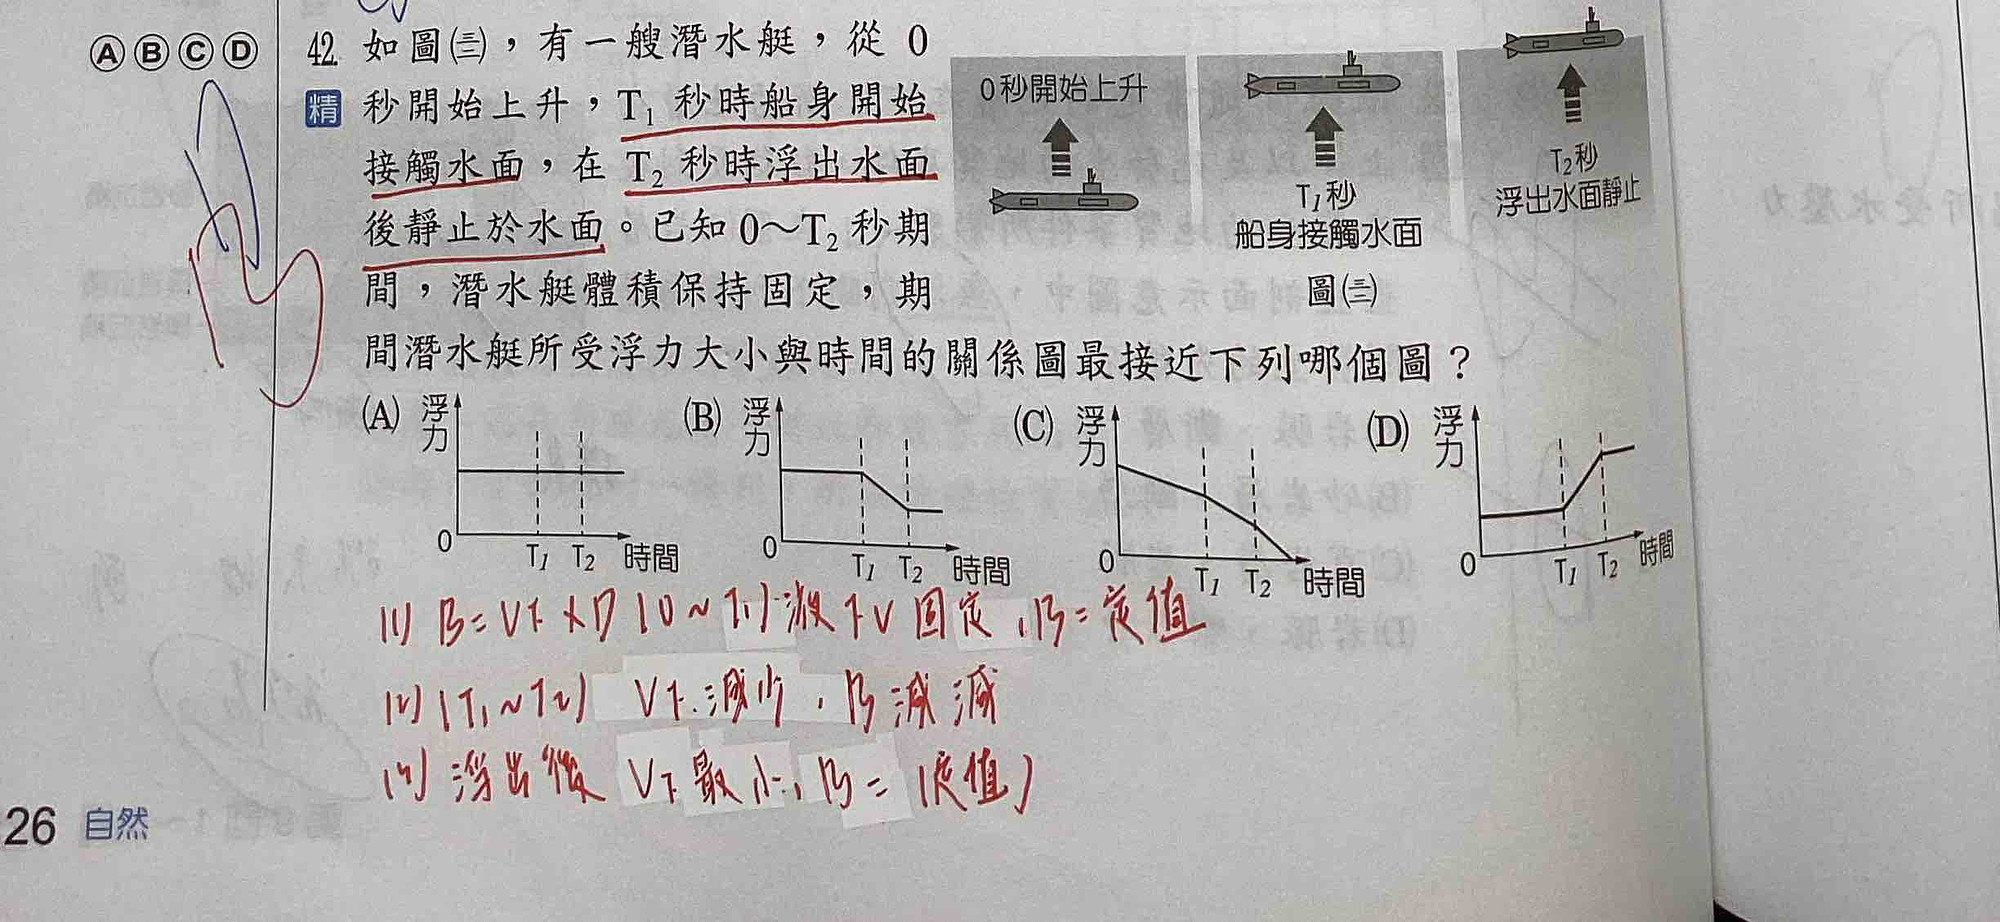 ⒶⒷⒸⒹ 42. 如圖㈢,有一艘潛水艇,從 0
精 秒開始上升,T₁ 秒時船身開始
接觸水面,在 T₂ 秒時浮出水面
後靜止於水面。已知 0～T₂ 秒期
間,潛水艇體積保持固定,期
間潛水艇所受浮力大小與時間的關係圖最接近下列哪個圖?
0秒開始上升
T₁秒
船身接觸水面
T₂秒
浮出水面靜止
圖㈢
(A) 浮力 0 T₁ T₂ 時間
(B) 浮力 0 T₁ T₂ 時間
(C) 浮力 0 T₁ T₂ 時間
(D) 浮力 0 T₁ T₂ 時間
(1) B=V下×D (0~T₁) 液下V固定,B=定值
(2) (T₁~T₂) V下減少,B減減
浮出後 V下最小,B=(定值)
26 自然